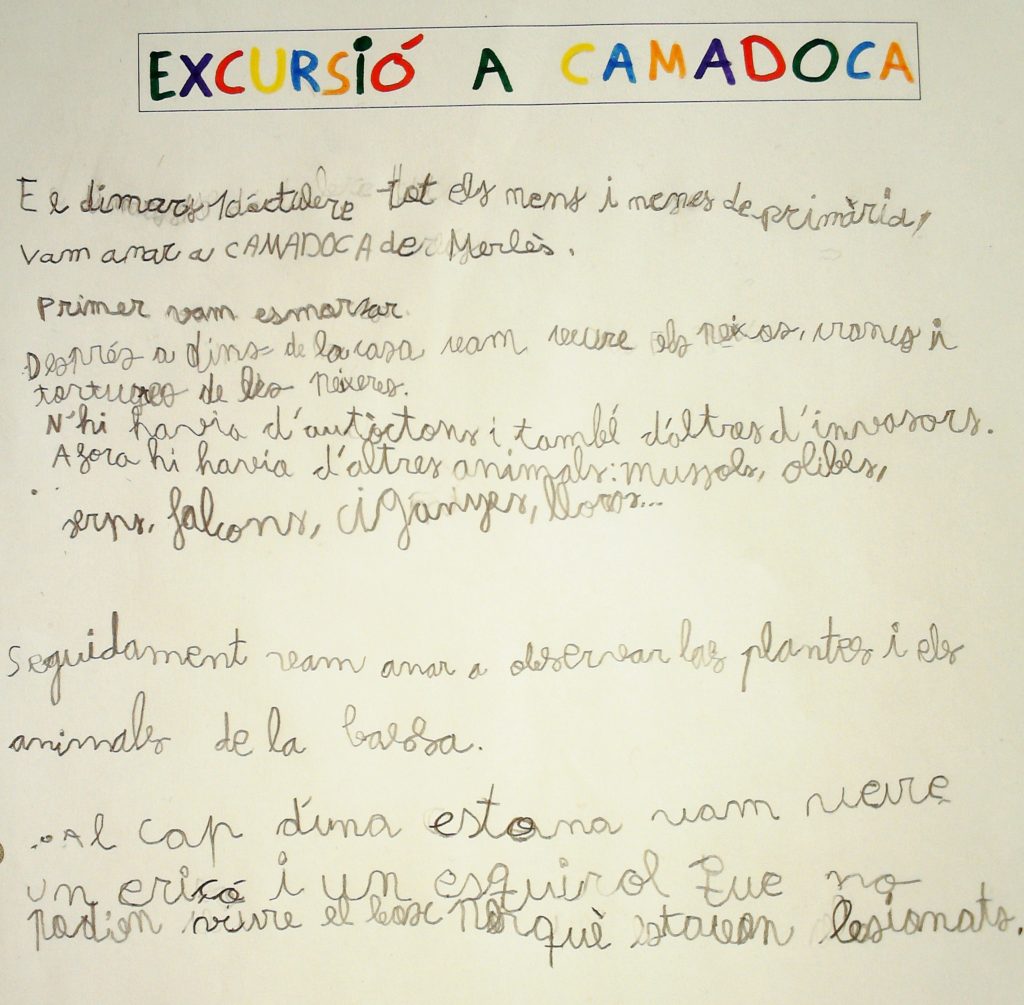 EXCURSIÓ A CAMADOCA
El dimars 1 d'octubre tot els nens i nenes de primària,
vam anar a CAMADOCA de Merlès.
Primer vam esmorsar.
Després a dins de la casa vam veure els peixos, crancs i
tortugues de les peixeres.
N'hi havia d'autòctons i també d'altres d'invasors.
Afora hi havia d'altres animals: mussols, olibes,
serps, falcons, ciganyes, lloros...
Seguidament vam anar a observar las plantes i els
animals de la bassa.
Al cap d'una estona vam veure
un eriçó i un esquirol que no
podien viure el bosc perquè estavan lesionats.